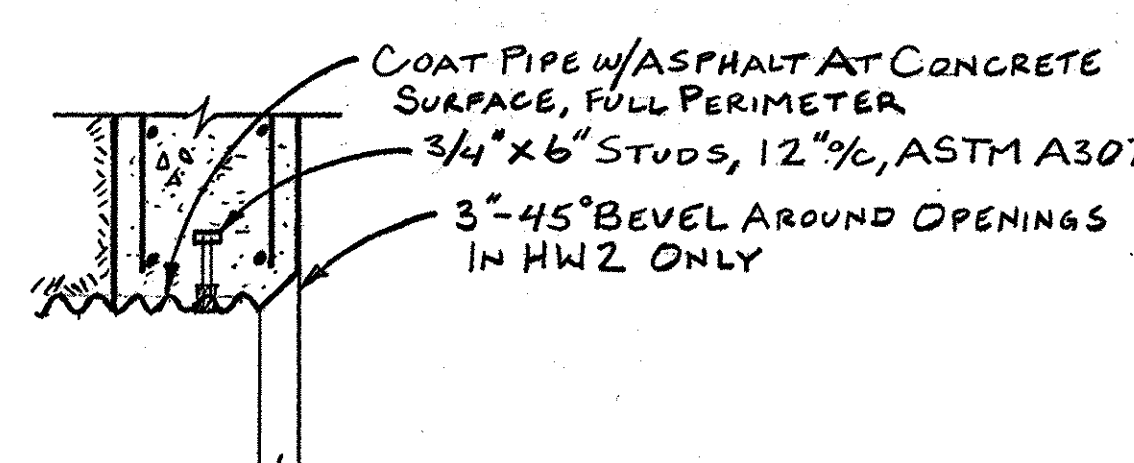 COAT PIPE W/ASPHALT AT CONCRETE
SURFACE, FULL PERIMETER
3/4"X6" STUDS, 12"O/C, ASTM A307
3"-45° BEVEL AROUND OPENINGS
IN HW2 ONLY